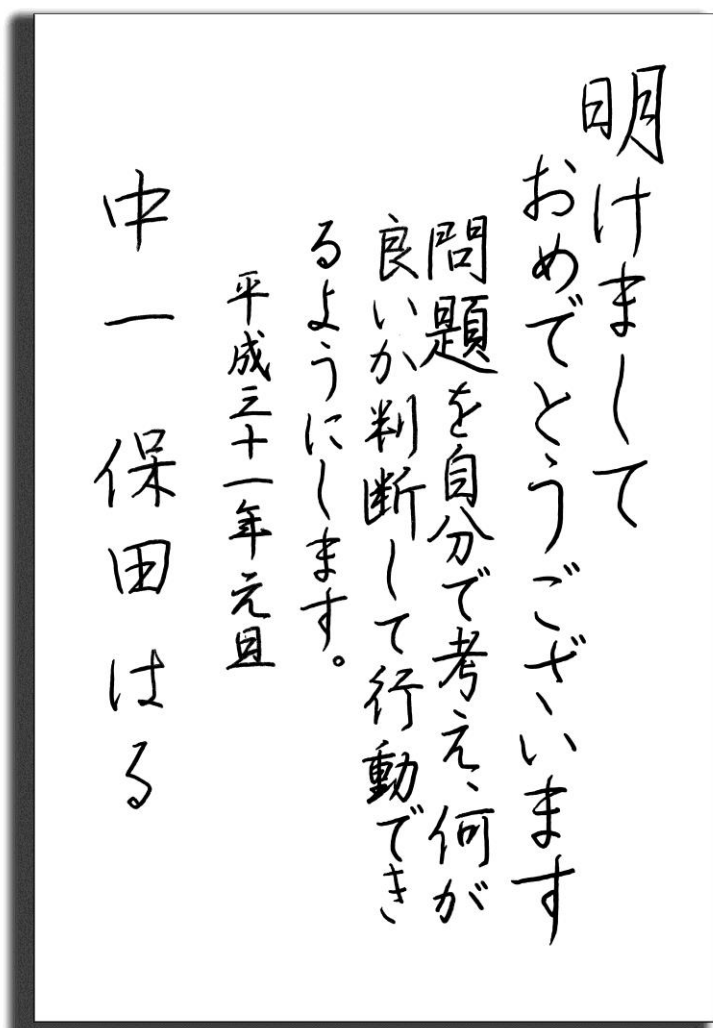 明けまして
おめでとうございます
問題を自分で考え、何が
良いか判断して行動でき
るようにします。
平成三十一年元旦
中一 保田はる